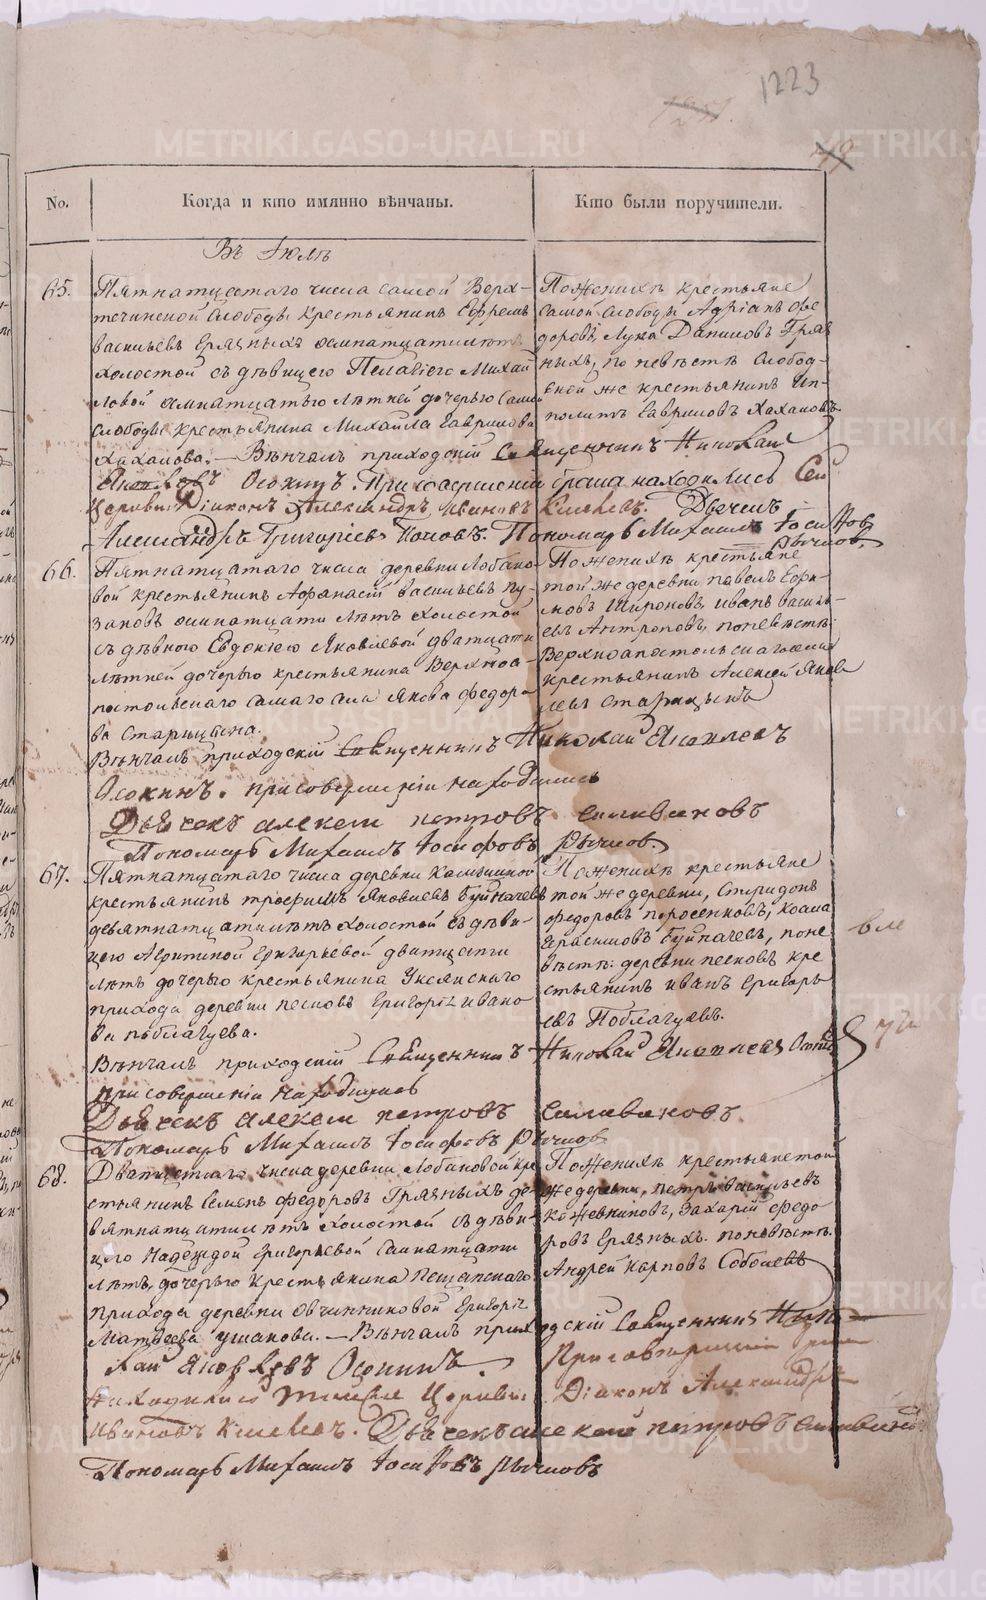 1223
No.
Когда и кто имянно вѣнчаны.
Кто были поручители.
Въ Іюлѣ
65.
Пятнатцетаго числа самой Верх-
теченской слободы крестьянинъ Ефремъ
васильевъ Грязныхъ осмнатцатилѣтъ
холостой съ дѣвицею Пелагіею Михай
ловой осмнатцатью лѣтней дочерью самой
слободы крестьянина Михайла Гаврилова
Хаханова. — Вѣнчалъ приходскій Священникъ Николай
Яковлевъ Осокинъ. При совершеніи брака находились Сей
Церкви Діаконъ Александръ Ивановъ Киселевъ. Дьячекъ
Александръ Григоріевъ Поповъ. Пономарь Михаилъ Іосифовъ
Рычковъ.
По женихѣ крестьяне
самой слободы Адріанъ Фе
доровъ, Лука Даниловъ Гряз
ныхъ, по невѣстѣ слобод-
ской же крестьянинъ Ип-
политъ Гавриловъ Хахановъ.
66.
Пятнатцатаго числа деревни Лобано-
вой крестьянинъ Афанасій васильевъ Пу-
заковъ осмнатцати лѣтъ холостой
съ дѣвкою Евдокіею Яковлевой дватцати
лѣтней дочерью крестьянина Верхноа-
постольскаго самаго села Якова Федоро
ва Старицына.
Вѣнчалъ приходскій Священникъ Николай Яковлевъ
Осокинъ. при совершеніи находились
Дьячекъ алексей петровъ селивановъ
Пономарь Михаилъ Іосифовъ Рычковъ.
По женихѣ крестьяне
той же деревни павелъ Ефи-
мовъ Широковъ, иванъ василь-
евъ Антроповъ, по невѣстѣ:
Верхноапостольскаго села
крестьянинъ Алексей Яков
левъ Старицынъ
67.
Пятнатцатаго числа деревни Камышной
крестьянинъ трофимъ Яковлевъ Буйначевъ
девятнатцатилѣтъ холостой съ дѣви-
цею Агрипиной Григорьевой дватцети
лѣтъ дочерью крестьянина Уксянскаго
прихода деревни песковъ Григорія ивано
ва поблагуева.
Вѣнчалъ приходскій Священникъ Николай Яковлевъ Осокинъ
при совершеніи находились
Дьячекъ алексей петровъ селивановъ.
Пономарь Михаилъ Іосифовъ Рычковъ
По женихѣ крестьяне
той же деревни, Спиридонъ
федоровъ поросенковъ, Козма
Герасимовъ Буйначевъ, по не
вѣстѣ: деревни песковъ кре
стьянинъ иванъ Григорь
евъ Поблагуевъ.
68.
Дватцетаго числа деревни Лобановой кре
стьянинъ Семенъ федоровъ Грязныхъ де-
вятнатцатилѣтъ холостой съ дѣви-
цею Надеждой Григорьевой Семнатцати
лѣтъ, дочерью крестьянина Пещанскаго
прихода деревни Овчинниковой Григорія
Матвѣева ушакова. — Вѣнчалъ приходскій Священникъ Нико-
лай Яковлевъ Осокинъ. При совершеніи
находились Церкви Діаконъ Александръ
Ивановъ Киселевъ. Дьячекъ алексей петровъ селивановъ
Пономарь Михаилъ Іосифовъ Рычковъ
По женихѣ крестьяне той
же деревни, петръ васильевъ
Кожевниковъ, Захарій федо
ровъ Грязныхъ. по невѣстѣ.
Андрей Карповъ Соболевъ